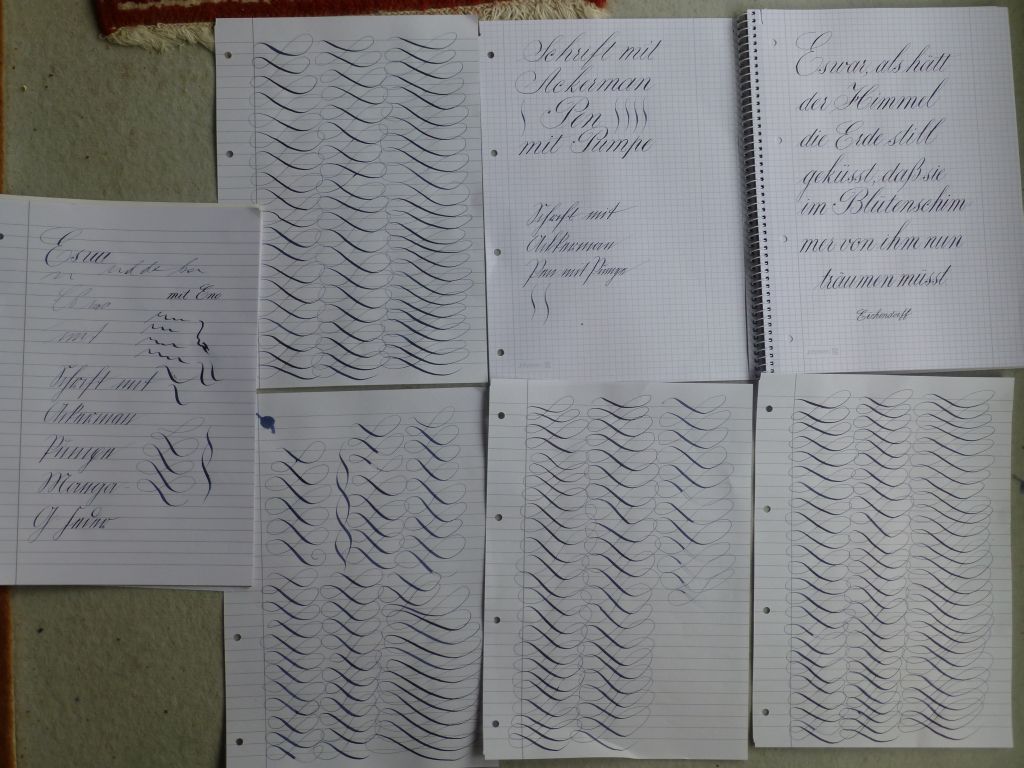 Schrift mit
Ackerman
Pen
mit Pumpe
Schrift mit
Ackerman
Pen mit Pumpe
Es war, als hätt
der Himmel
die Erde still
geküsst, daß sie
im Blütenschim
mer von ihm nun
träumen müsst
Eichendorff
Es war
mit Ene
Schrift mit
Ackerman
Pumpen
Manga
G Feder